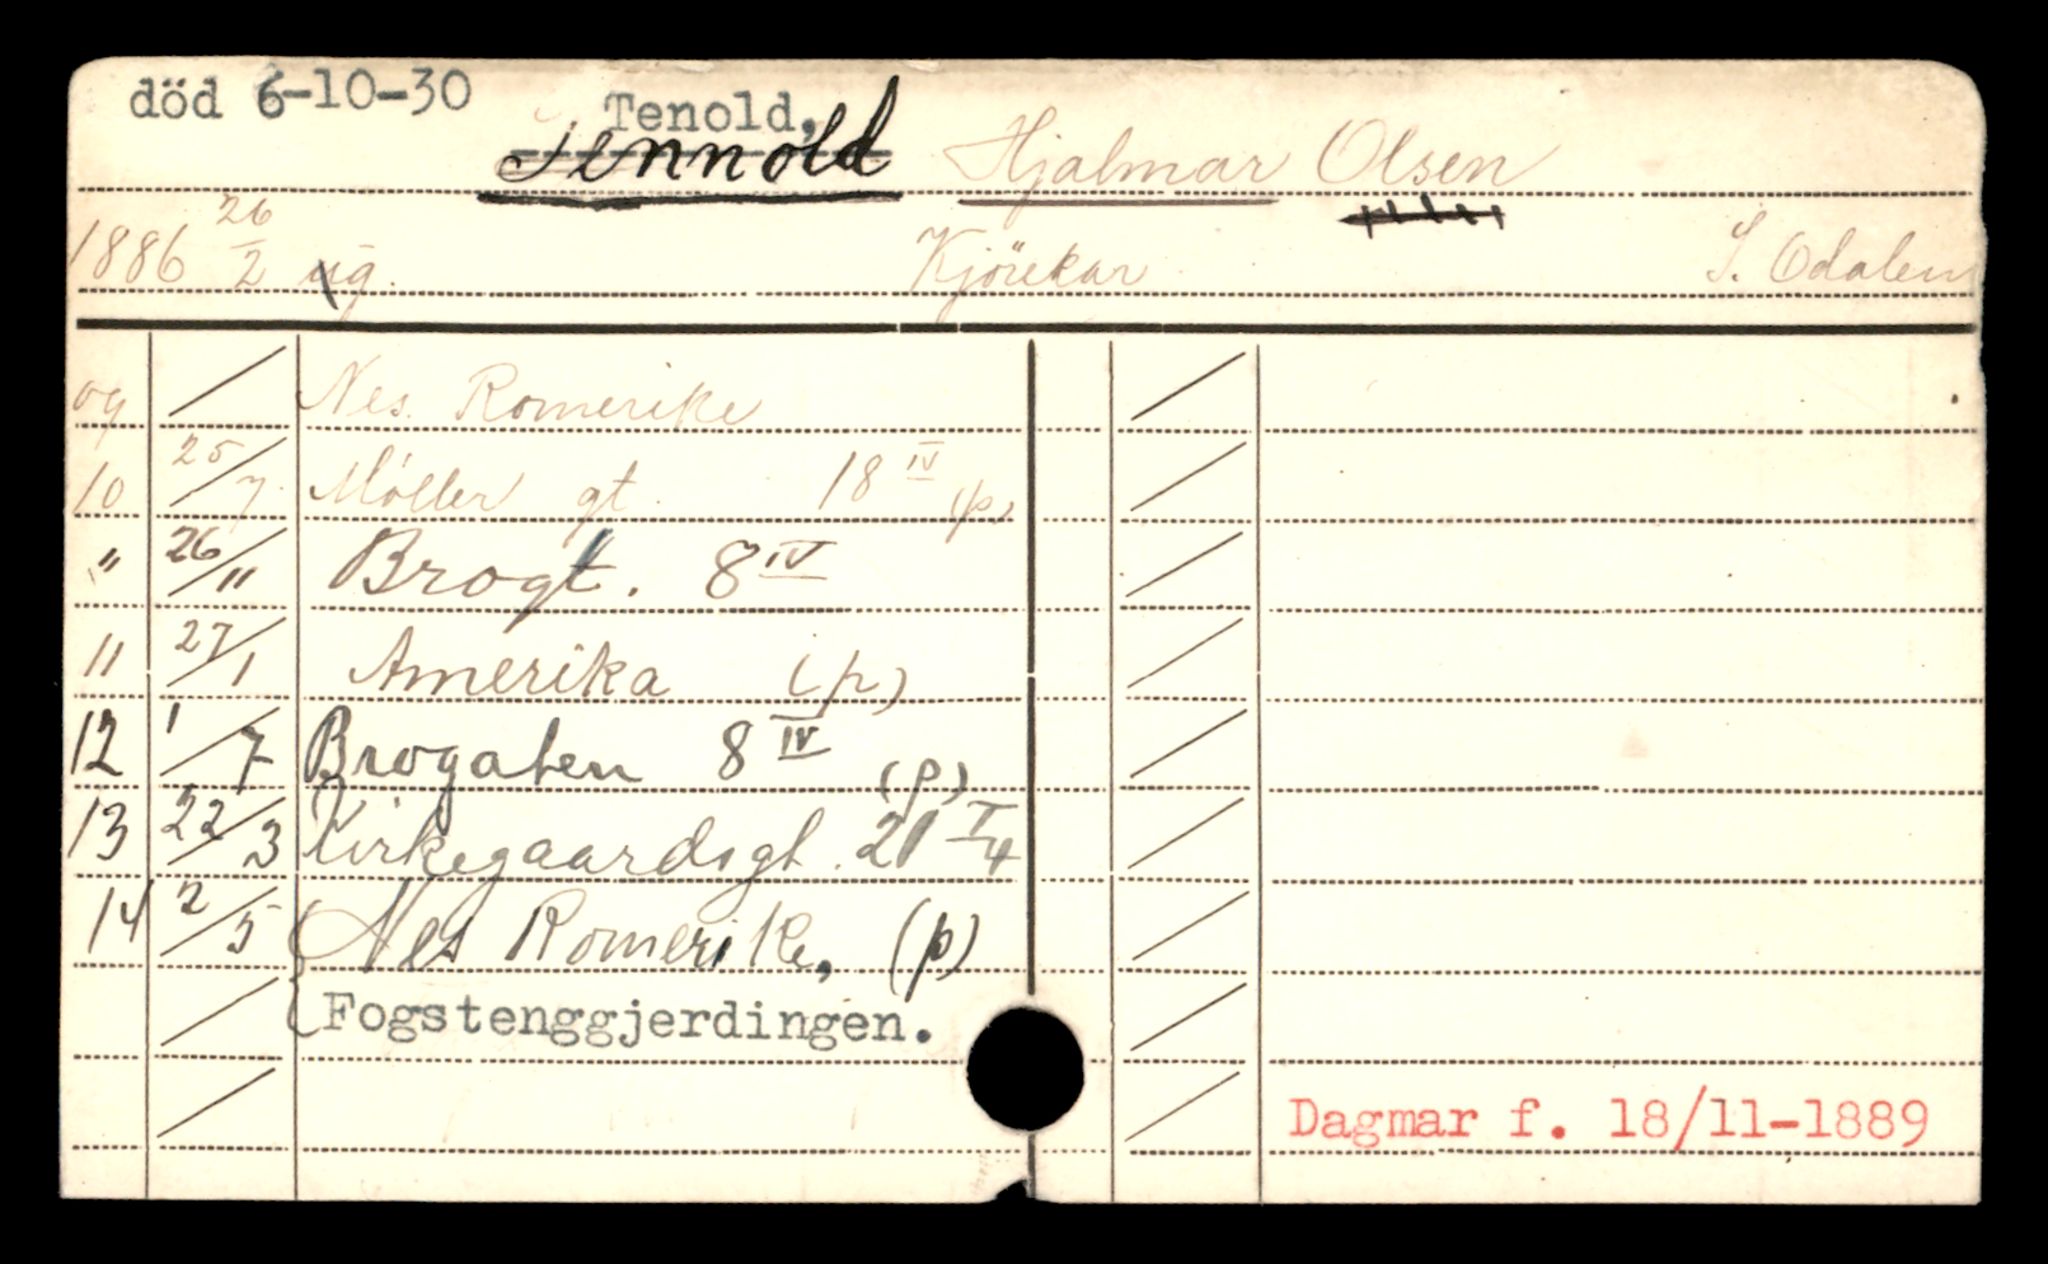 död 6-10-30
Tenold,
Tennold Hjalmar Olsen
1886 26/2 ug. Kjörekar S. Odalen
09 / Nes. Romerike
10 25/7 Möller gt. 18 IV (p)
" 26/11 Brogt. 8 IV
11 27/1 Amerika (p)
12 1/7 Brogaten 8 IV (p)
13 22/3 Kirkegaardsgt. 21 I/4
14 2/5 Nes Romerike, (p)
Fogstenggjerdingen.
Dagmar f. 18/11-1889